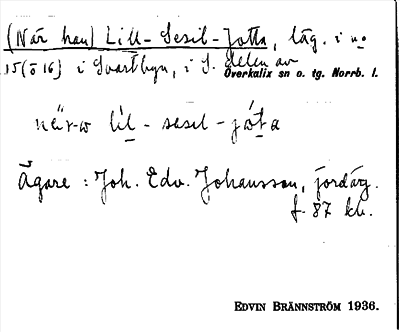 (När han) Lill-Sesil-Jotta, läg. i no
15 (o 16) i Svartbyn, i S. delen av
Överkalix sn o. tg. Norrb. l.
lil - sesil - jóta
Ägare : Joh. Edv. Johansson, jordäg.
f. 87 kv.
EDVIN BRÄNNSTRÖM 1936.